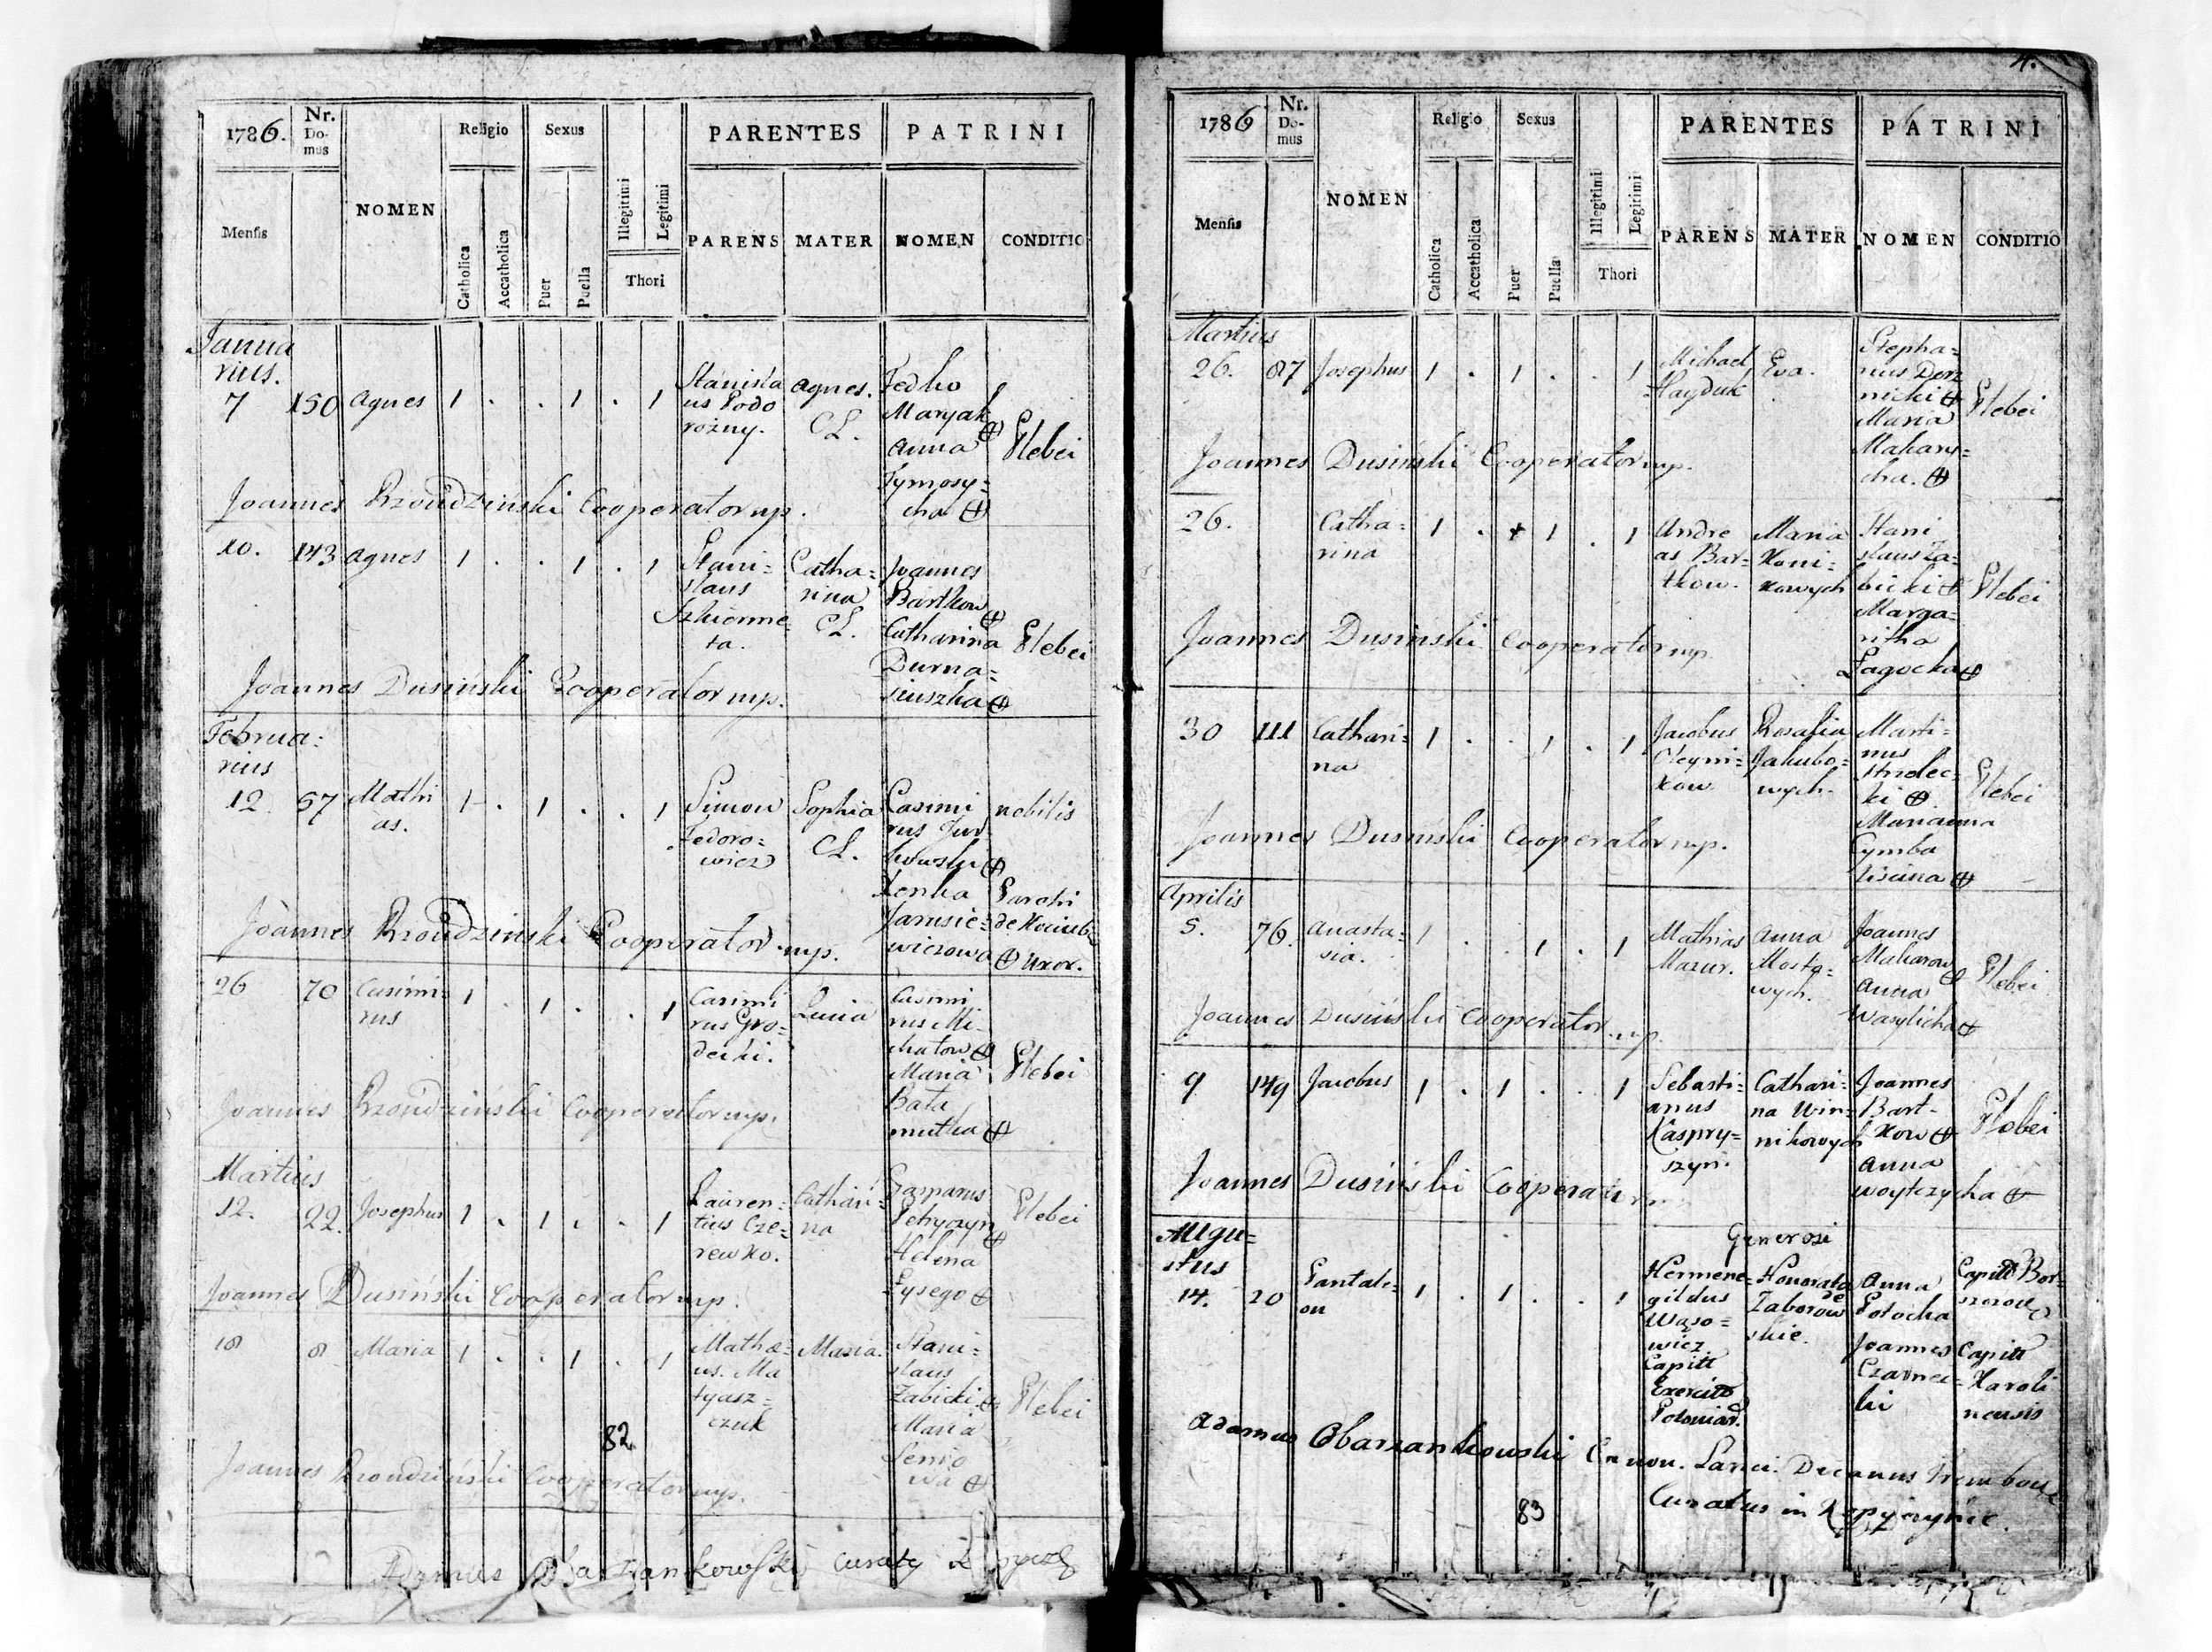 1786.
Nr. Do- mus
Mensis
NOMEN
Religio
Catholica
Accatholica
Sexus
Puer
Puella
Illegitimi
Legitimi
Thori
PARENTES
PARENS
MATER
PATRINI
NOMEN
CONDITIO
Janua
rius.
7 150 Agnes 1 . . 1 . 1
Stanisla
us Podo
rożny.
Agnes.
CL.
Fedko
Maryak
Anna
Tymosy=
cha
Plebei
Joannes Rzoudzinski Cooperator mp.
10. 143 Agnes 1 . . 1 . 1
Stani=
slaus
Szkieme
ta.
Catha=
rina
CL.
Joannes
Bartkow
Catharina
Durna=
siuszka
Plebei
Joannes Dusinski Cooperator mp.
Februa=
rius
12. 57 Mathi
as. 1 . 1 . . 1
Simon
Fedoro=
wicz
Sophia
CL.
Casimi
rus Jur
kowski
Xenka
Jarusie=
wiczowa
nobilis
Parochi
uxor.
Joannes Rzoudzinski Cooperator mp.
26 70 Casimi=
rus 1 . 1 . . 1
Casimi
rus Gro=
decki.
Lucia
Casimi
rus Mi=
chatow
Maria
Bata
mutka
Plebei
Joannes Rzoudziński Cooperator mp.
Martius
12. 22. Josephus 1 . 1 . . 1
Lauren=
tius Cze=
rewko.
Cathari=
na
Gasparus
Petryczyn
Helena
Lysego
Plebei
Joannes Dusiński Cooperator mp.
18 8 Maria 1 . . 1 . 1
Mathæ=
us. Ma
tyasz=
czuk
Maria.
Stani=
slaus
Zabicki
Maria
Senio
wa
Plebei
82
Joannes Rzoudziński Cooperator mp.
4.
1786
Nr. Do- mus
Mensis
NOMEN
Religio
Catholica
Accatholica
Sexus
Puer
Puella
Illegitimi
Legitimi
Thori
PARENTES
PARENS
MATER
PATRINI
NOMEN
CONDITIO
Martius
26. 87 Josephus 1 . 1 . . 1
Michael
Hayduk
Eva.
Stepha=
nus Derz
nicki
Maria
Makary=
cha.
Plebei
Joannes Dusiński Cooperator mp.
26. Catha=
rina 1 . 1 . 1
Andre
as Bar=
tkow.
Maria
Koni=
kowych
Stani
slaus Za=
bicki
Marga=
ritha
Łagocka
Plebei
Joannes Dusiński Cooperator mp.
30 111 Cathari=
na 1 . . 1 . 1
Jacobus
Oleyni=
kow
Rosalia
Jakubo=
wych.
Marti=
nus
Strzelec=
ki
Marianna
Cymba
listina
Plebei
Joannes Dusiński Cooperator mp.
Aprilis
5. 76. Anasta=
sia. 1 . . 1 . 1
Mathias
Mazur.
Anna
Mosto=
wych.
Joannes
Makarow
Anna
Wasylicha
Plebei
Joannes Dusiński Cooperator mp.
9 149 Jacobus 1 . 1 . . 1
Sebasti=
anus
Kaspry=
szyn.
Cathari=
na Win=
nikowych
Joannes
Bart=
kow
Anna
Woytczycha
Plebei
Joannes Dusiński Cooperator
Augu=
stus
14. 20 Pantale=
on 1 . 1 . . 1
Generosi
Hermene=
gildus
Wąso=
wicz
Capitt
Exercitus
Poloniar.
Honorata
de
Zaborow
skie.
Anna
Potocka
Joannes
Czarnec=
ki
Capitt
Capitt
Karoli
nensis
Adamus Obarzankowski Canon. Lanci. Decanus Trembow
Curatus in Kopyczynie.
83